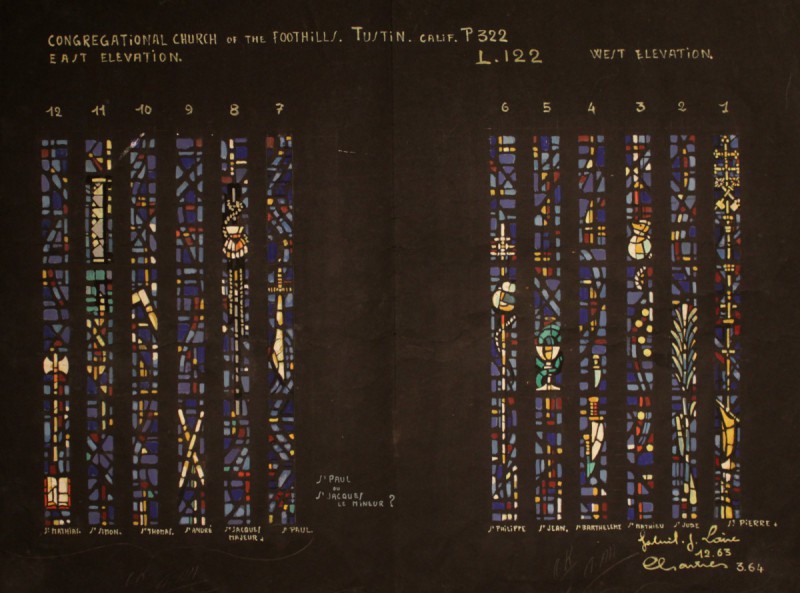 CONGREGATIONAL CHURCH OF THE FOOTHILLS. TUSTIN. CALIF. P322
EAST ELEVATION.
L.122
WEST ELEVATION.
12 11 10 9 8 7
6 5 4 3 2 1
St PAUL
OU
St JACQUES
LE MINEUR ?
St MATHIAS. St SIMON. St THOMAS. St ANDRÉ St JACQUES MAJEUR. St PAUL.
St PHILIPPE St JEAN. St BARTHELEME St MATHIEU St JUDE St PIERRE.
Gabriel. J. Loire
12.63
Chartres 3.64